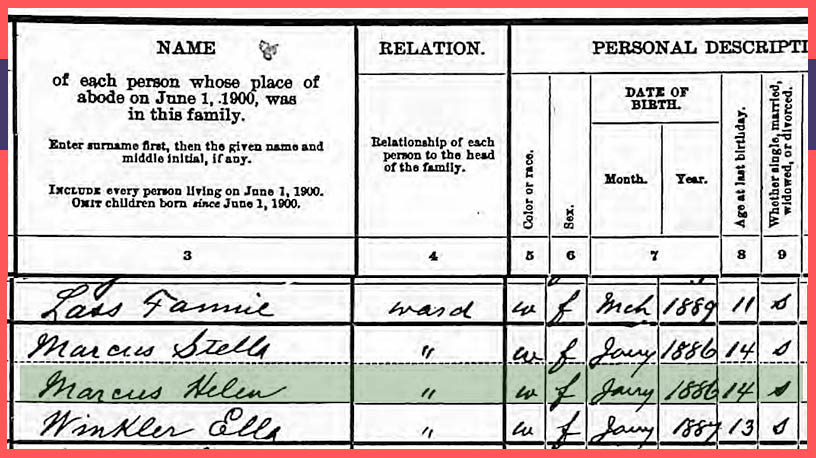 NAME
of each person whose place of
abode on June 1, 1900, was
in this family.
Enter surname first, then the given name and
middle initial, if any.
INCLUDE every person living on June 1, 1900.
OMIT children born since June 1, 1900.
RELATION.
Relationship of each
person to the head
of the family.
PERSONAL DESCRIPTI
Color or race.
Sex.
DATE OF
BIRTH.
Month.
Year.
Age at last birthday.
Whether single, married,
widowed, or divorced.
3 4 5 6 7 8 9
Lass Fannie ward w f Mch 1889 11 s
Marcus Stella " w f Jany 1886 14 s
Marcus Helen " w f Jany 1886 14 s
Winkler Ella " w f Jany 1887 13 s